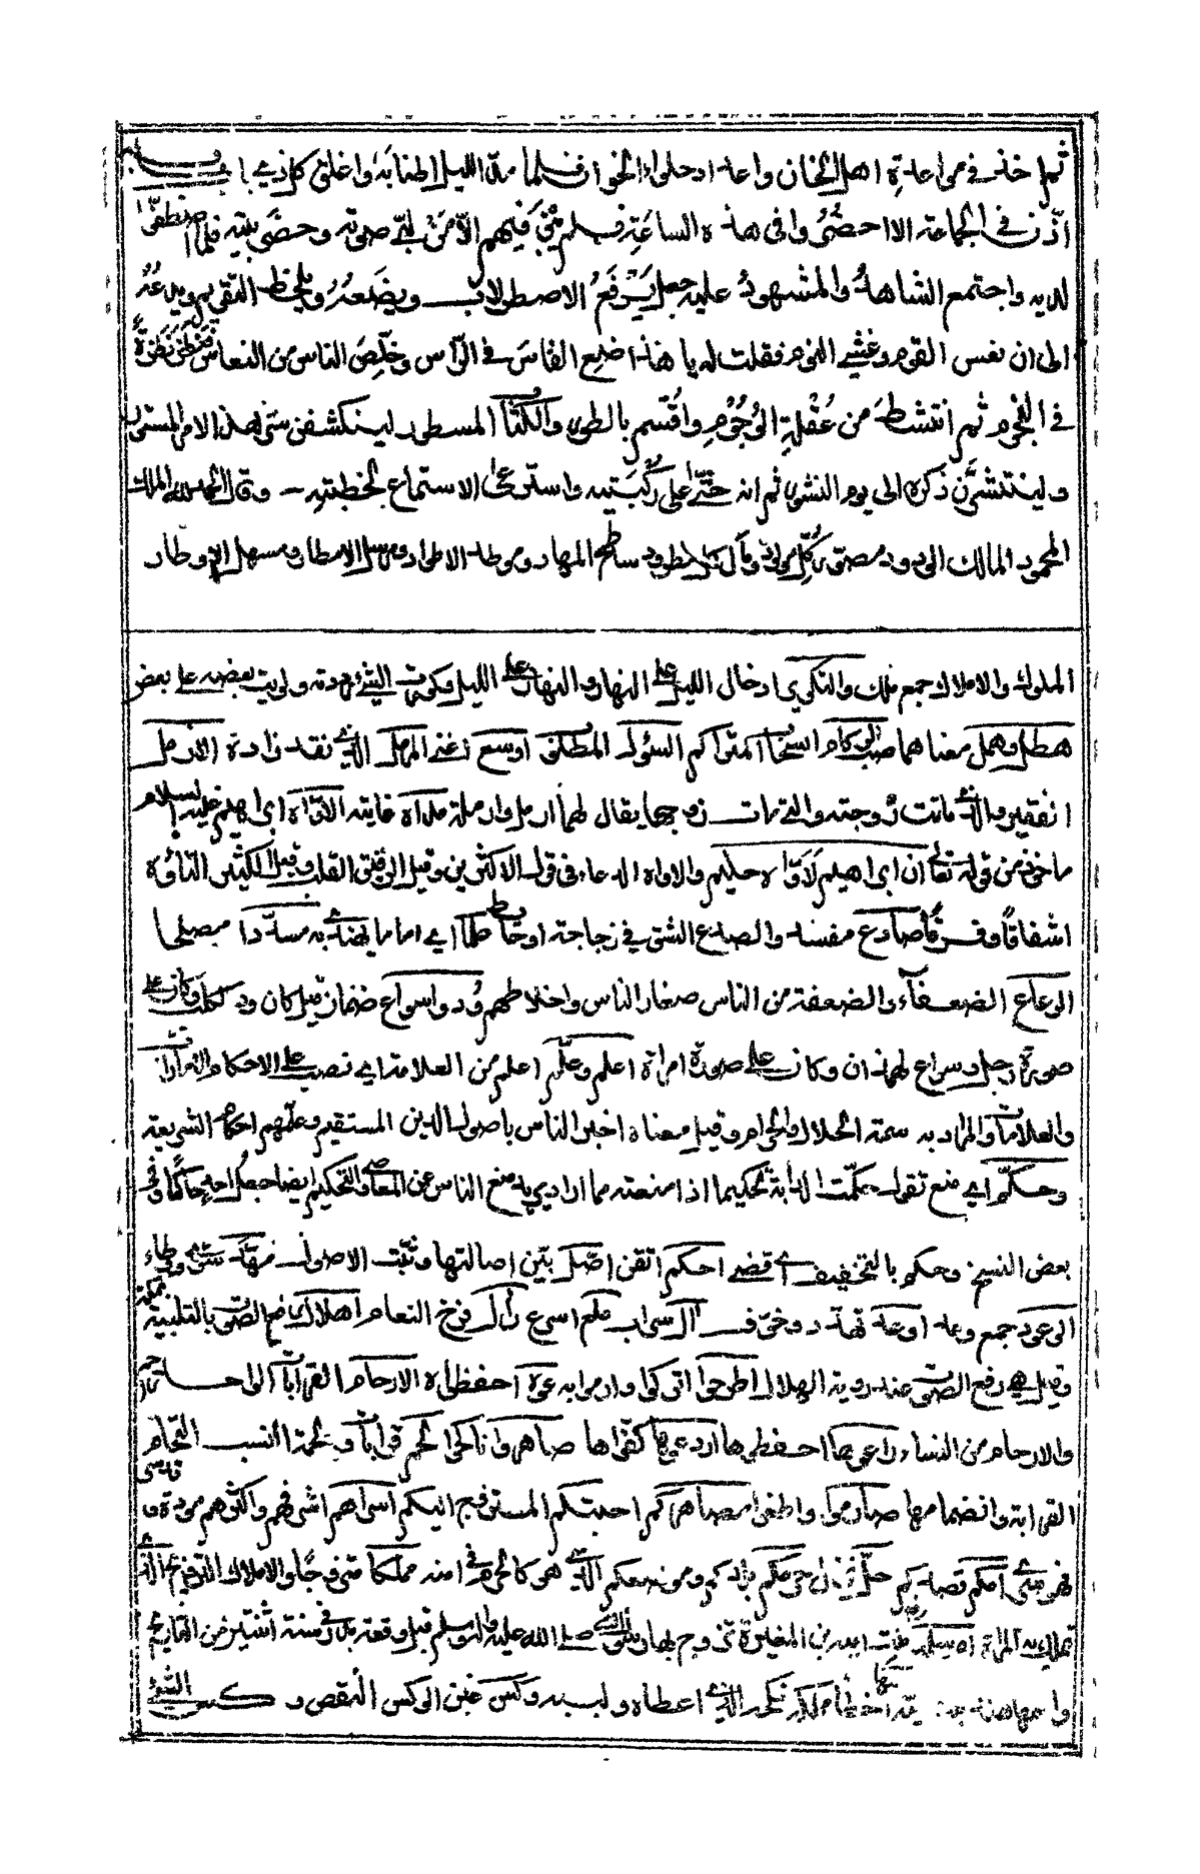 ثم اخذ في مواعدة اهل الخان واعداد حلواء الخوان فلما مد الليل اطنابه واغلق كل ذي باب بابه
اذن في الجماعة الا احضروا في هذه الساعة فلم يبق فيهم الا من لبى صوته وحضر بيته فلما اصطفوا
لديه واجتمع الشاهد والمشهود عليه جعل يرفع الاصطرلاب ويضعه ويلحظ التقويم ويدعه
الى ان نعس القوم وغشي النوم فقلت له يا هذا ضع الفاس في الراس وخلص الناس من النعاس فنظر نظرة
في النجوم ثم انتشط من عقلة الوجوم واقسم بالطور والكتاب المسطور لينكشفن سر هذا الامر المستور
ولينتشرن ذكره الى يوم النشور ثم انه جثى على ركبتيه واسترعى الاستماع لخطبته وقال الحمد لله الملك
المحمود المالك الودود مصور كل مولود ومآل كل مطرود ساطح المهاد وموطد الاطواد ومرسل الامطار ومسهل الاوطار
الملوك والاملاك جمع ملك والتكوير ادخال الليل على النهار والنهار على الليل وكورت الشيء ولويت بعضه على بعض
هطل وهمل معناهما صب الركام السحاب المتراكم السؤل المطلق اوسع اغنى المرمل الذي نفد زاده الارمل
الفقير والذي ماتت زوجته والتي مات زوجها يقال لهما ارمل وارملة مداه غايته الاواه ابراهيم عليه السلام
ماخوذ من قوله تعالى ان ابراهيم لاواه حليم والاواه الدعاء في قول الاكثرين وقيل الرقيق القلب وقيل الكثير التاوه
اشفاقا وفرقا صادع مفسد والصدع الشق في زجاجة او حائط اماما اي اماما يهتدى به مسددا مصلحا
الرعاع الضعفاء والضعفة من الناس صغار الناس واخلاطهم ود وسواع ضنمان قيل كان ود لكلب وكان على
صورة رجل وسواع لهمذان وكان على صورة امراة اعلم وعلم اعلم من العلامة اي نصب على الاحكام
والعلامات والمراد به سمة الحلال والحرام وقيل معناه اخبر الناس باصول الدين المستقيم وعلمهم احكام الشريعة
وحكم اي منع تقول حكمت الدابة تحكيما اذا منعته مما اراد يريد منع الناس عن المعاصي والتحكيم ايضا جعل احد حاكما وفي
بعض النسخ وحكم بالتخفيف اي قضى احكم اتقن اصل بين اصالتها وثبت الاصول مهد سوى ووطاء
الوعود جمع وعد اوعد تهدد وخوف آل سراب ملع اسرع رال فرخ النعام اهلال رفع الصوت بالتلبية
وقيل هي رفع الصوت عند روية الهلال اطرحوا اتركوا وارموا به عوه احفظوه الارحام القرابات الواحد رحم
والارحام من النساء راعوها احفظوها اردعوها كفوها صاهروا ناكحوا لحم قرابات ولحمة النسب
القرابة وانضمامها صارموا واطعوا مصاهركم احبتكم المستوفج اليكم اسراهم اشرفهم واكثرهم مودة
امكم قصدكم حل نزل حرمكم وموضعكم الذي هو كالحرم في امنه مملكا متزوجا والاملاك التزويج
تمليك المراة ام سلمة بنت امية بن المغيرة تزوج بها رسول الله صلى الله عليه وسلم قبل وقعة بدر في سنة اثنتين من التاريخ
اعطاه وكس غبن الوكس النقص وكس الشيء